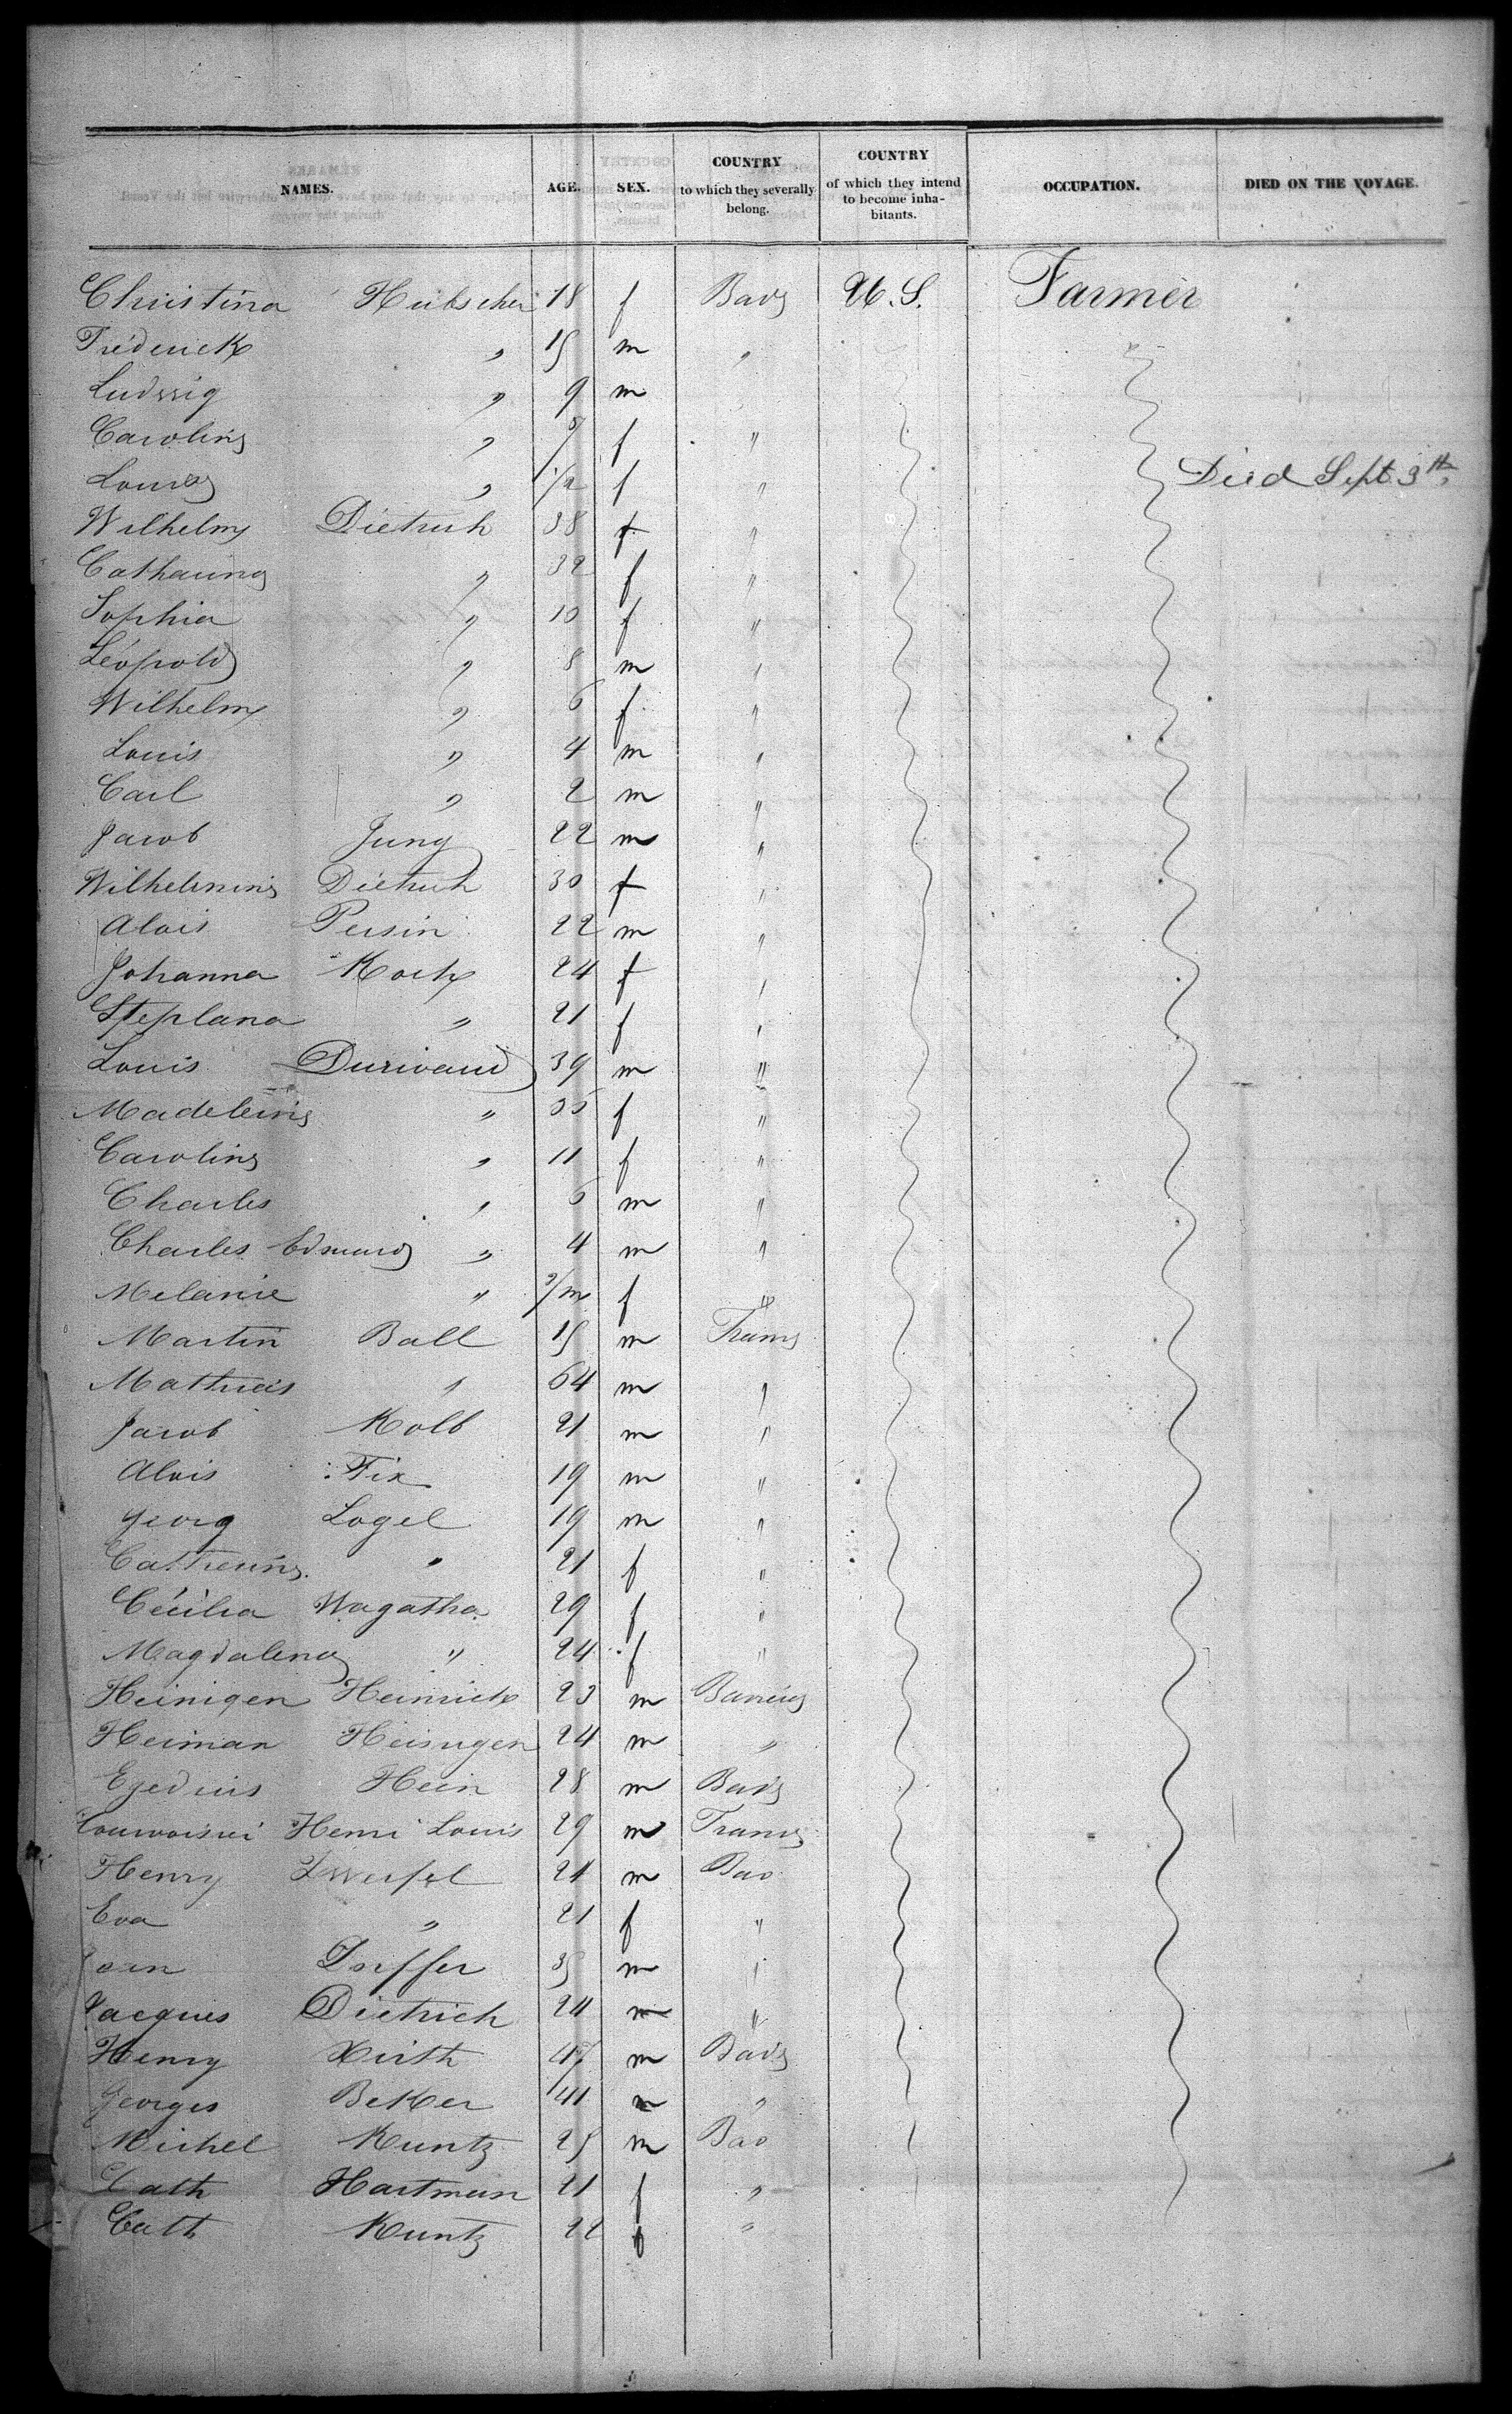 NAMES. AGE. SEX. COUNTRY to which they severally belong. COUNTRY of which they intend to become inhabitants. OCCUPATION. DIED ON THE VOYAGE.
Christina Hübscher 18 f Bade U.S. Farmer
Frederick " 15 m "
Ludwig " 9 m
Caroline " 7 f "
Louise " 1/2 f " Died Sept 3th
Wilhelm Dietrich 38 f "
Catharina " 32 f "
Sophia " 10 f "
Léopold " 8 m "
Wilhelm " 6 f "
Louis " 4 m "
Carl " 2 m "
Jacob Jung 22 m "
Wilhelmine Dietrich 30 f "
Alois Persin 22 m "
Johanna Koch 24 f "
Steplana " 21 f "
Louis Durivaud 39 m "
Madeleine " 35 f "
Caroline " 11 f "
Charles " 6 m "
Charles Edmund " 4 m "
Melanie " 9/m f "
Martin Ball 15 m France
Mathias " 64 m "
Jacob Kolb 21 m "
Alois Fix 19 m "
Georg Logel 19 m "
Catherine " 21 f "
Cécilia Wagatha 29 f "
Magdalena " 24 f "
Heinigen Heinrich 23 m
Heiman Heisugen 24 m "
Egedius Hein 28 m Bade
Henri Louis 29 m France
Henry Zweifel 21 m Bav
Eva " 21 f "
Jean 35 m "
Jacques Dietrich 24 m "
Henry Hirth 47 m Bade
Georges Beker 41 m "
Michel Kuntz 25 m Bav
Cath Hartman 21 f "
Cath Kuntz 22 f "